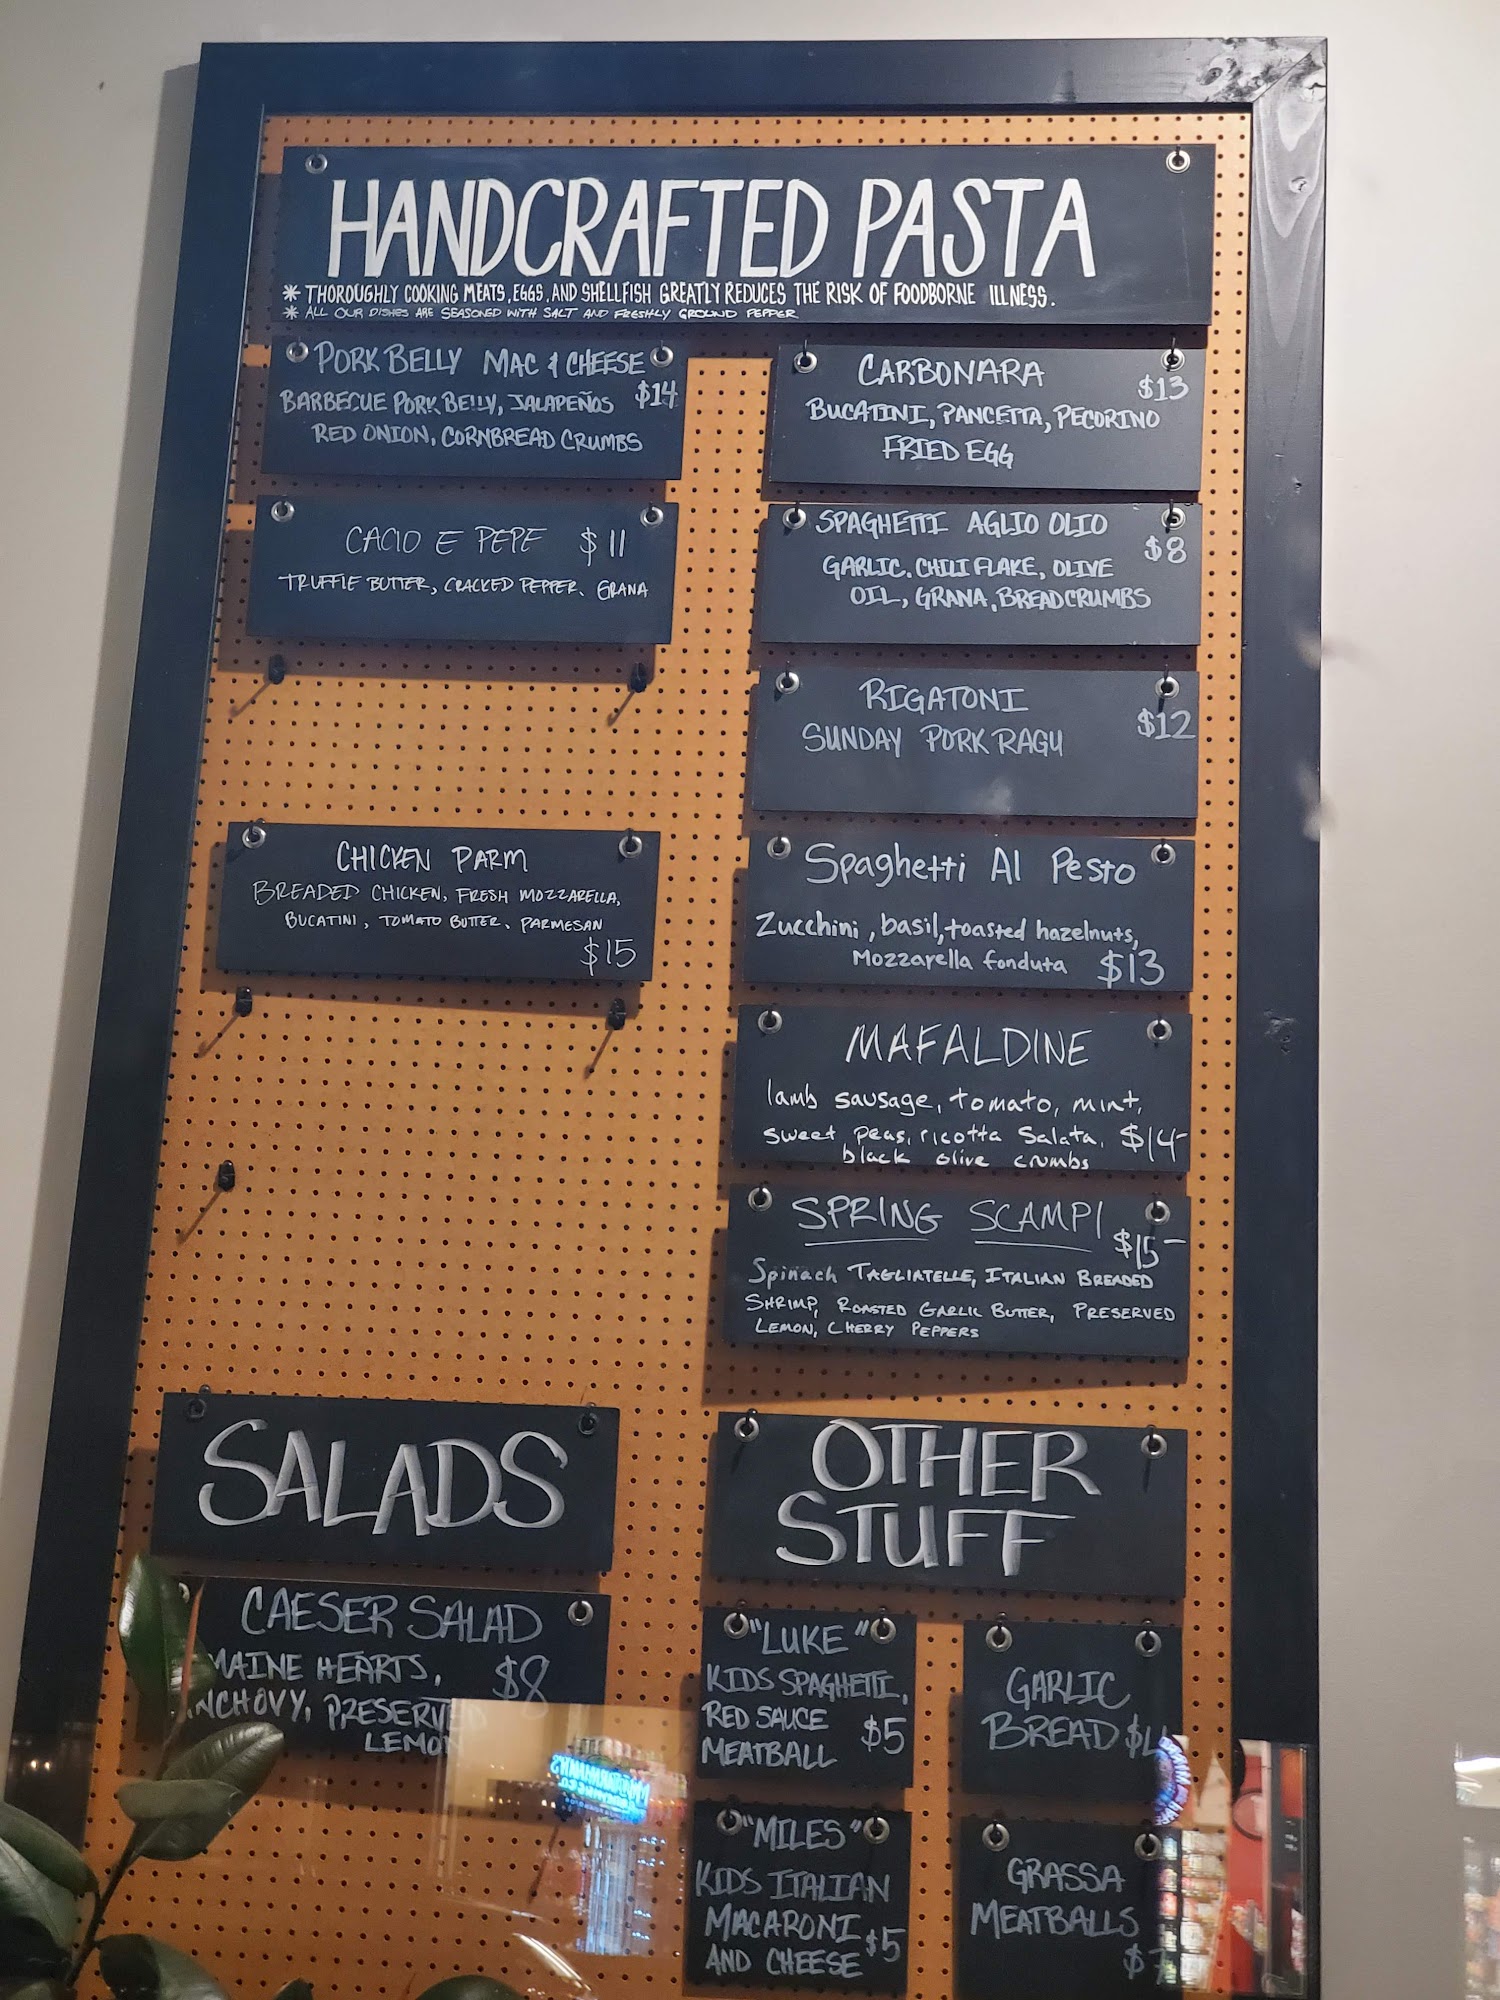 HANDCRAFTED PASTA
* THOROUGHLY COOKING MEATS, EGGS, AND SHELLFISH GREATLY REDUCES THE RISK OF FOODBORNE ILLNESS.
* ALL OUR DISHES ARE SEASONED WITH SALT AND FRESHLY GROUND PEPPER
PORK BELLY MAC & CHEESE
$14
BARBECUE PORK BELLY, JALAPEÑOS
RED ONION, CORNBREAD CRUMBS
CACIO E PEPE $11
TRUFFLE BUTTER, CRACKED PEPPER, GRANA
CHICKEN PARM
BREADED CHICKEN, FRESH MOZZARELLA,
BUCATINI, TOMATO BUTTER, PARMESAN
$15
CARBONARA
$13
BUCATINI, PANCETTA, PECORINO
FRIED EGG
SPAGHETTI AGLIO OLIO
$8
GARLIC, CHILI FLAKE, OLIVE
OIL, GRANA, BREADCRUMBS
RIGATONI
$12
SUNDAY PORK RAGU
Spaghetti Al Pesto
Zucchini, basil, toasted hazelnuts,
Mozzarella fonduta $13
MAFALDINE
lamb sausage, tomato, mint,
sweet peas, ricotta salata, $14-
black olive crumbs
SPRING SCAMPI
$15-
Spinach TAGLIATELLE, ITALIAN BREADED
SHRIMP, ROASTED GARLIC BUTTER, PRESERVED
LEMON, CHERRY PEPPERS
SALADS
CAESER SALAD
MAINE HEARTS, $8
NCHOVY, PRESERVED
LEMON
OTHER
STUFF
"LUKE"
KIDS SPAGHETTI,
RED SAUCE
MEATBALL $5
GARLIC
BREAD
"MILES"
KIDS ITALIAN
MACARONI $5
AND CHEESE
GRASSA
MEATBALLS
$7